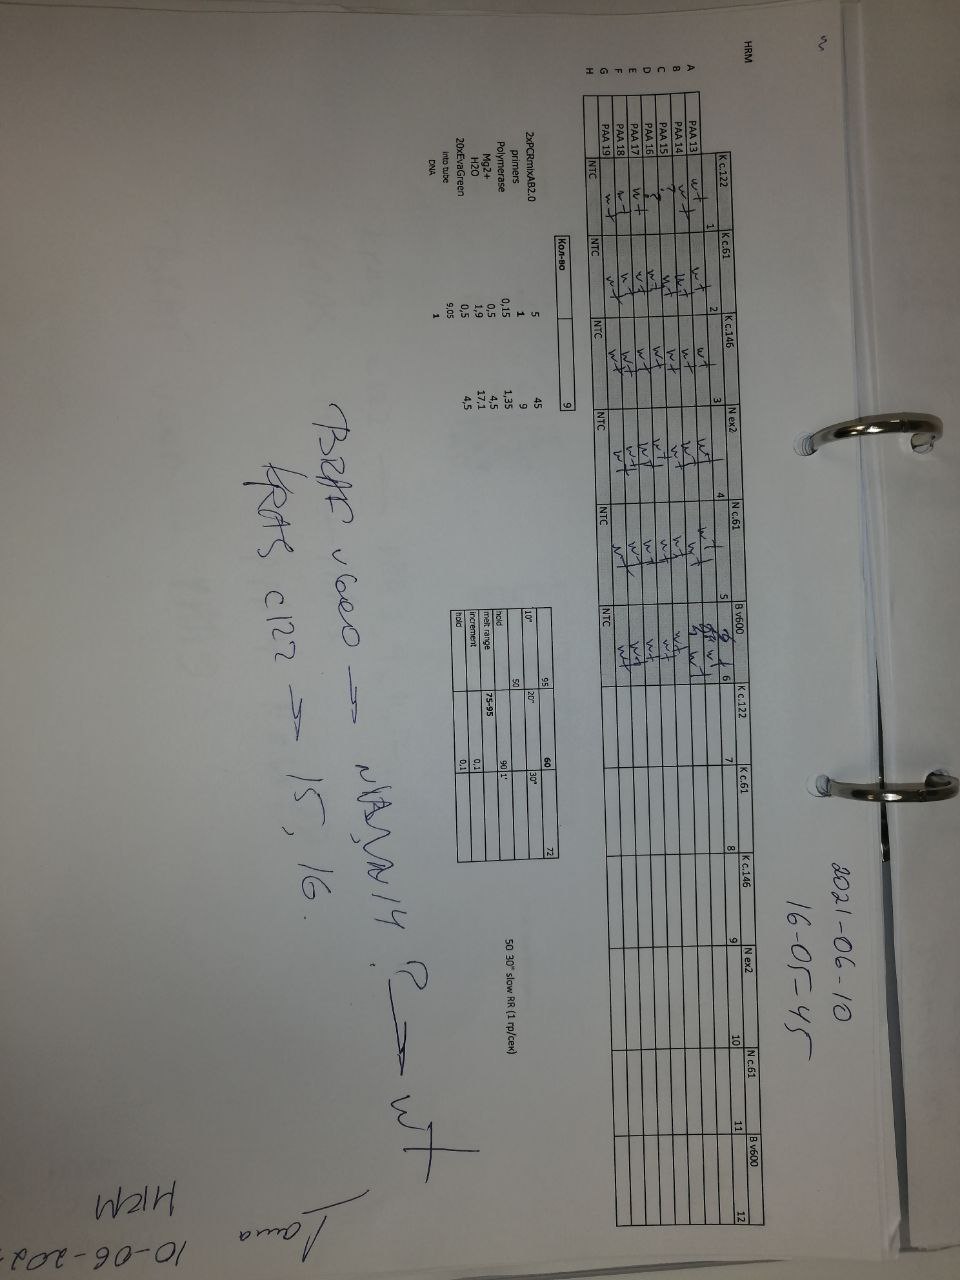 2021-06-10
16-05-45
HRM
K c.122 K c.61 K c.146 N ex2 N c.61 B v600 K c.122 K c.61 K c.146 N ex2 N c.61 B v600
1 2 3 4 5 6 7 8 9 10 11 12
A PAA 13 wt wt wt wt wt wt
B PAA 14 wt wt wt wt wt wt
C PAA 15 ? wt wt wt wt wt
D PAA 16 ? wt wt wt wt wt
E PAA 17 wt wt wt wt wt wt
F PAA 18 wt wt wt wt wt wt
G PAA 19 wt wt wt
H NTC NTC NTC NTC NTC NTC
Кол-во 9
2xPCRmixAB2.0 5 45
primers 1 9
Polymerase 0,15 1,35
Mg2+ 0,5 4,5
H2O 1,9 17,1
20xEvaGreen 0,5 4,5
into tube 9,05
DNA 1
95 60 72
10" 20" 30"
50
hold 90 1'
melt range 75-95
increment 0,1
hold 0,1
50 30" slow RR (1 гр/сек)
BRAF v600 → 14 ? → wt
KRAS c122 → 15, 16.
HRM